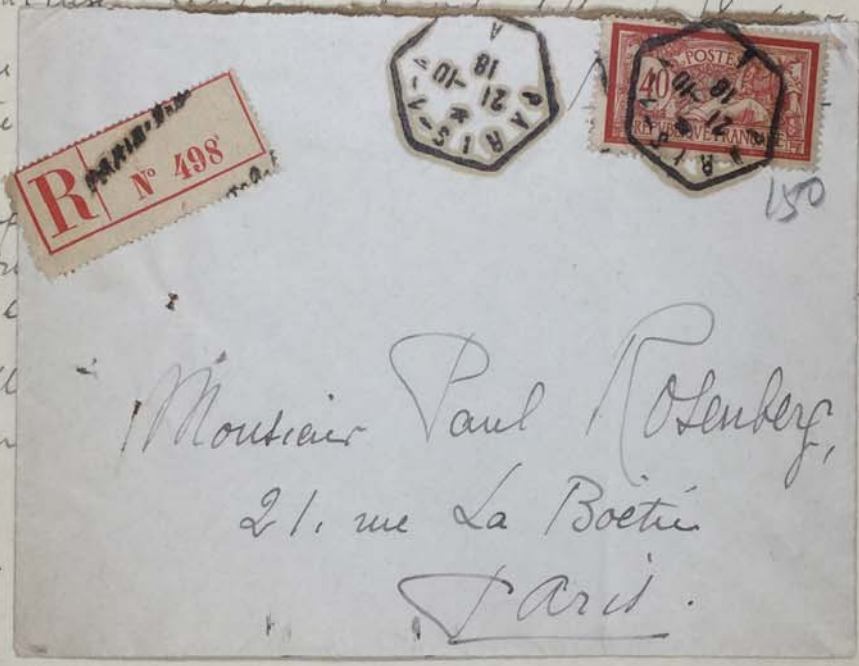 R
N° 498
PARIS-1-
A
21
-10
18
40
POSTES
REPUBLIQUE FRANÇAISE
21
-10
18
150
Monsieur Paul Rosenberg,
21, rue La Boëtie
Paris.